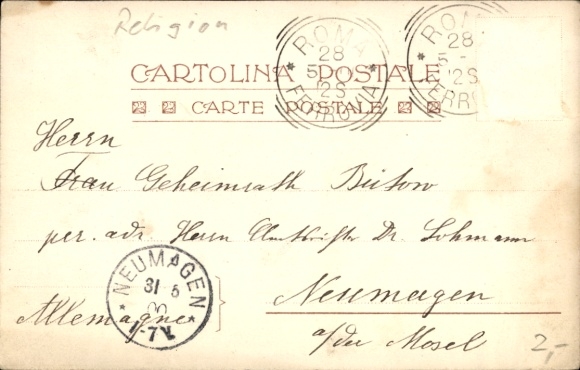 Religion
ROMA
28
5
12S
FERROVIA
ROMA
28
5
12S
FERR
CARTOLINA POSTALE
CARTE POSTALE
Herrn
Frau Geheimrath Bülow
per. adr. Herrn Amtsrichter Dr. Lohmann
NEUMAGEN
31 5
00
7-7V
Neumagen
Allemagne
a/der Mosel
2,-